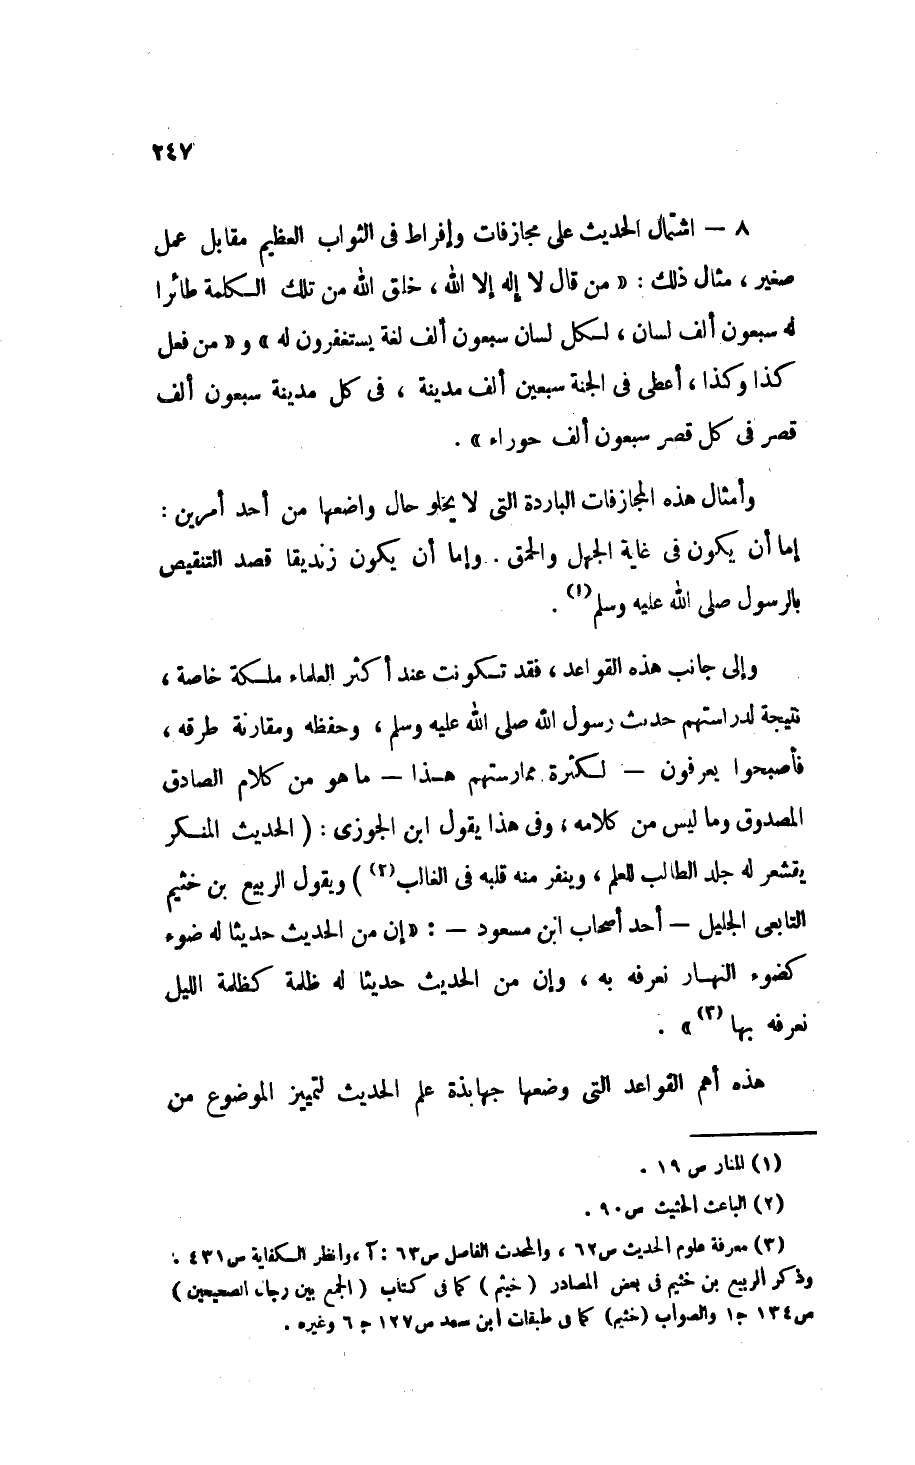 ٢٤٧
٨ — اشتمال الحديث على مجازفات وإفراط فى الثواب العظيم مقابل عمل
صغير ، مثال ذلك : « من قال لا إله إلا الله ، خلق الله من تلك الكلمة طائرا
له سبعون ألف لسان ، لكل لسان سبعون ألف لغة يستغفرون له » و « من فعل
كذا وكذا ، أعطى فى الجنة سبعين ألف مدينة ، فى كل مدينة سبعون ألف
قصر فى كل قصر سبعون ألف حوراء » .
وأمثال هذه المجازفات الباردة التى لا يخلو حال واضعها من أحد أمرين :
إما أن يكون فى غاية الجهل والحمق . وإما أن يكون زنديقا قصد التنقيص
بالرسول صلى الله عليه وسلم (١) .
وإلى جانب هذه القواعد ، فقد تكونت عند أكثر العلماء ملكة خاصة ،
نتيجة لدراستهم حديث رسول الله صلى الله عليه وسلم ، وحفظه ومقارنة طرقه ،
فأصبحوا يعرفون — لكثرة ممارستهم هذا — ما هو من كلام الصادق
المصدوق وما ليس من كلامه ، وفى هذا يقول ابن الجوزى : ( الحديث المنكر
يقشعر له جلد الطالب للعلم ، وينفر منه قلبه فى الغالب (٢) ) ويقول الربيع بن خثيم
التابعى الجليل — أحد أصحاب ابن مسعود — : « إن من الحديث حديثا له ضوء
كضوء النهار نعرفه به ، وإن من الحديث حديثا له ظلمة كظلمة الليل
نعرفه بها (٣) » .
هذه أهم القواعد التى وضعها جهابذة علم الحديث لتمييز الموضوع من
(١) المنار ص ١٩ .
(٢) الباعث الحثيث ص ٩٠ .
(٣) معرفة علوم الحديث ص ٦٢ ، والمحدث الفاصل ص ٦٣ : آ ، وانظر الكفاية ص ٤٣١ .
وذكر الربيع بن خثيم فى بعض المصادر ( خيثم ) كما فى كتاب ( الجمع بين رجال الصحيحين )
ص ١٣٤ ج ١ والصواب (خثيم) كما فى طبقات ابن سعد ص ١٢٧ ج ٦ وغيره .